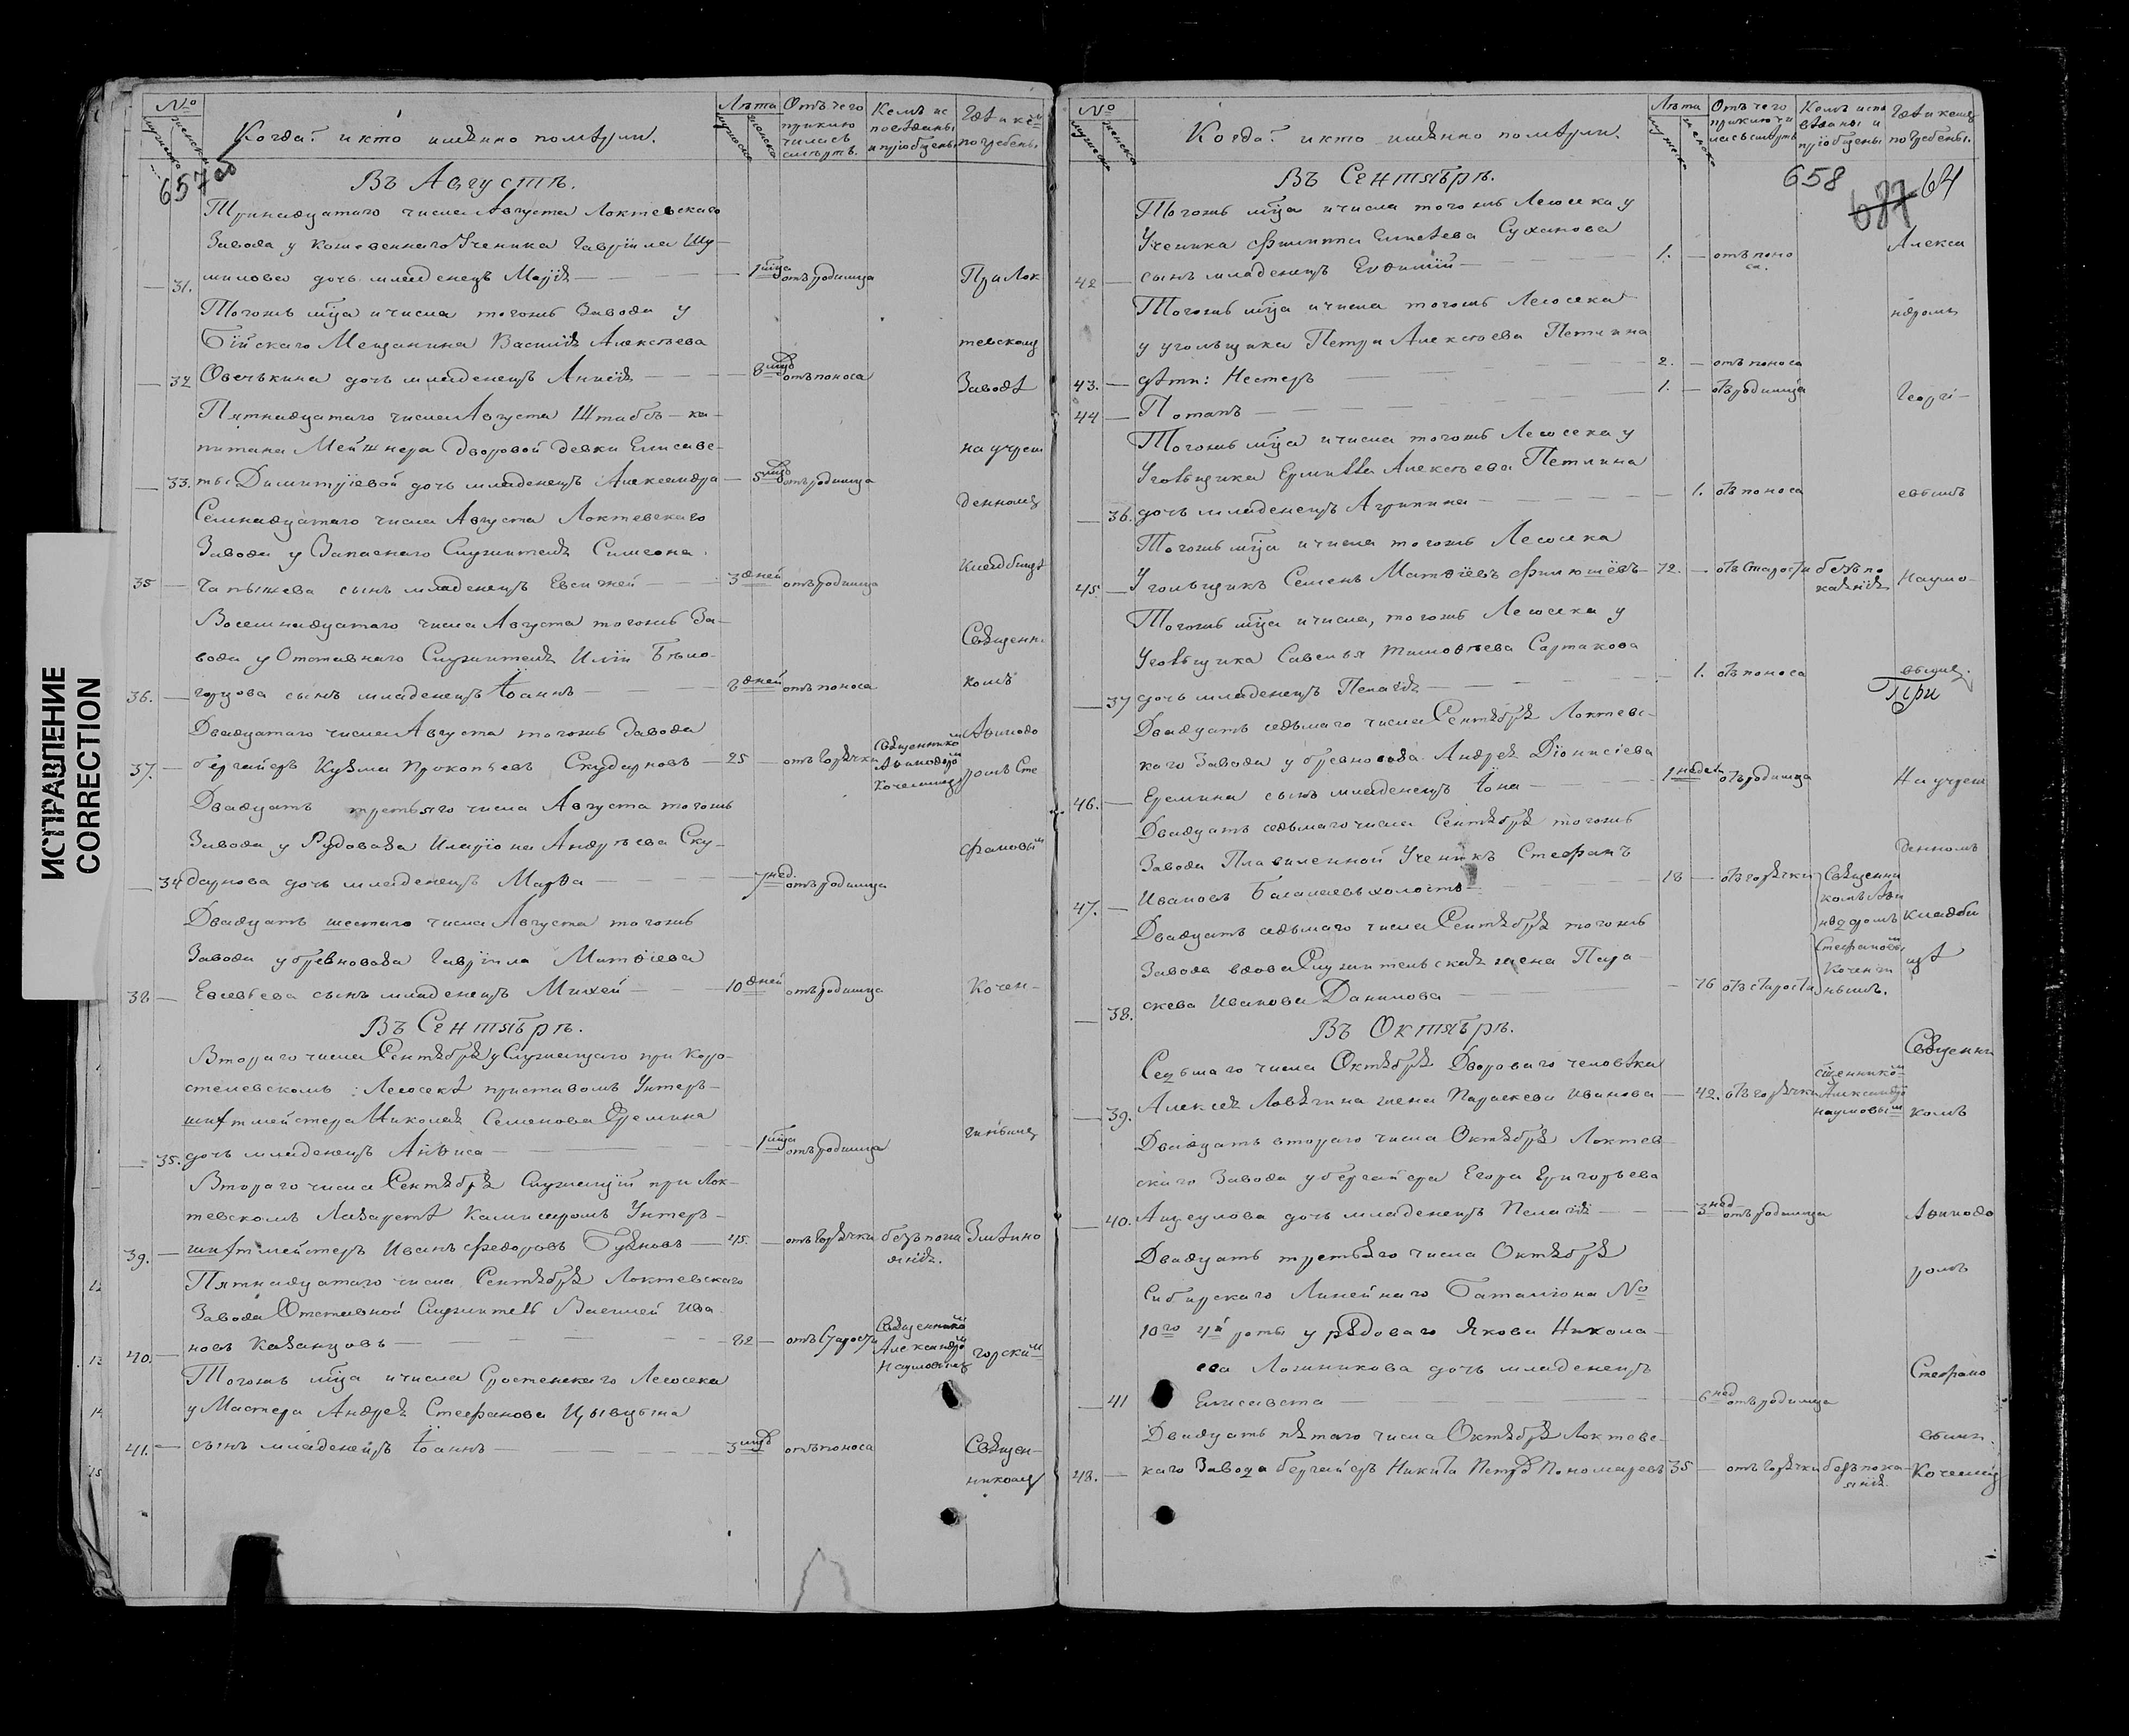 ИСПРАВЛЕНИЕ
CORRECTION
№
мужеска
женска
Когда? и кто имянно помѣрли.
Лѣта
мужеска
женска
Отъ чего приключилась смерть.
Кемъ исповѣданы и пріобщены
Гдѣ и кемъ погребены
657 об
Въ Августѣ.
Тринадцатаго числа Августа Локтевскаго
Завода у Ученика Гавріила Шу-
31. милова дочь младенецъ Марія — 1 мца отъ родимца При Лок
Тогожъ мца и числа тогожъ Завода у
Бійскаго Мещанина Василія Алексѣева тевскомъ
32 Овечькина дочь младенецъ Анисія — 8 мцъ отъ поноса Заводѣ
Пятнадцатаго числа Августа Штабсъ-ка-
питана Мейжнера дворовой девки Елисаве- на учреж
33. ты Димитріевой дочь младенецъ Александра — 5 мцъ отъ родимца
Семнадцатаго числа Августа Локтевскаго денномъ
Завода у Запаснаго Служителя Симеона
35 — Чапыжева сынъ младенецъ Евсигней — 3 дней отъ родимца кладбищѣ
Восемнадцатаго числа Августа тогожъ За-
вода у Отставнаго Служителя Иліи Бѣло- Священни
36. — сынъ младенецъ Іоаннъ — 8 дней отъ поноса комъ
Двадцатаго числа Августа тогожъ Завода
37. — бергайеръ Кузма Прокопьевъ Скударновъ — 25 отъ горячки Священникомъ Авинодоромъ Коченгинымъ
Авинодо
ромъ Сте
Двадцать третьяго числа Августа тогожъ
Завода у Рудовоза Иларіона Андрѣева Ску- фановымъ
34 дарнова дочь младенецъ Марѳа — 7 нед. отъ родимца
Двадцать шестаго числа Августа тогожъ
Завода у бревновоза Гавріила Матѳіева
38 — Евсевьева сынъ младенецъ Михей — 10 дней отъ родимца Кочен-
Въ Сентябрѣ.
Втораго числа Сентября у Служащаго при Коро-
стелевскомъ Лесосекѣ приставомъ Унтеръ-
шихтмейстера Николая Семенова Еремина гинымъ
35. дочь младенецъ Анѳиса — 1 мца отъ родимца
Втораго числа Сентября Служащій при Лок-
тевскомъ Лазаретѣ Унтеръ-
39. — шихтмейстеръ Иванъ Федоровъ — 45. — отъ горячки безъ пока янія. Змѣино
Пятнадцатаго числа Сентября Локтевскаго
Завода Отставной Служитель Василей Ива
40. — новъ Казанцовъ — 82 — отъ старости Священникомъ Александромъ Наумовымъ горскимъ
Тогожъ мца и числа Лесосека
у Мастера Андрея Стефанова Цывцына
41. — сынъ младенецъ Іоаннъ — 3 мцъ отъ поноса Священ-
никомъ
№
мужеска
женска
Когда? и кто имянно помѣрли.
Лѣта
Отъ чего приключилась смерть
Кемъ исповѣданы и пріобщены
Гдѣ и кемъ погребены.
658
687 64
Въ Сентябрѣ.
Тогожъ мца и числа тогожъ Лесосека у
Ученика Филиппа Елисѣева Суханова Алекса
42 — сынъ младенецъ Евѳимій — 1. — отъ поноса.
Тогожъ мца и числа тогожъ Лесосека ндромъ
у угольщика Петра Алексѣева Петлина
43. — дѣти: Несторъ — 2. — отъ поноса
44 — Потапъ — 1. — отъ родимца Георгі-
Тогожъ мца и числа тогожъ Лесосека у
Угольщика Ермилла Алексѣева Петлина
36. дочь младенецъ Агрипина — 1. отъ поноса евымъ
Тогожъ мца и числа тогожъ Лесосека
45. — Угольщикъ Семенъ Матѳіевъ Филюшёвъ — 72. — отъ старости безъ покаянія Наумо-
Тогожъ мца и числа, тогожъ Лесосека у
Угольщика Савелья Тимоѳѣева Сартакова
37 дочь младенецъ Пелагія — 1. отъ поноса вымъ.
При
Двадцать седьмаго числа Сентября Локтевс-
каго Завода у бревновоза Андрея Діонисіева
46. — Еремина сынъ младенецъ Іона — 1 недел отъ родимца На учреж
Двадцать седьмаго числа Сентября тогожъ
Завода Плавиленной Ученикъ Стефанъ денномъ
47. — Ивановъ холостъ — 18 — отъ горячки Священникомъ Авинодоромъ Стефановымъ Коченгинымъ.
Двадцать седьмаго числа Сентября тогожъ кладби
Завода вдова Служительская жена Пара- щѣ
38. скева Иванова Данилова — 76 отъ старости
Въ Октябрѣ.
Седьмаго числа Октября Двороваго человѣка Священни
39. Алексѣя Ловягина жена Параскева Иванова — 42. отъ горячки сщенникомъ Александромъ Наумовымъ комъ
Двадцать втораго числа Октября Локтев
скаго Завода у бергайера Егора Григорьева
40. дочь младенецъ Пелагія — 3 нед отъ родимца Авинодо
Двадцать третьяго числа Октября
Сибирскаго Линейнаго Баталіона № ромъ
10го 4й роты у рядоваго Якова Никола-
ева Ложникова дочь младенецъ Стефано
41 Елисавета — 6 нед отъ родимца
Двадцать пятаго числа Октября Локтевс- вымъ.
48. — каго Завода бергайеръ Никита Петровъ Пономаревъ 35 — отъ горячки безъ покаянія. Коченгинымъ